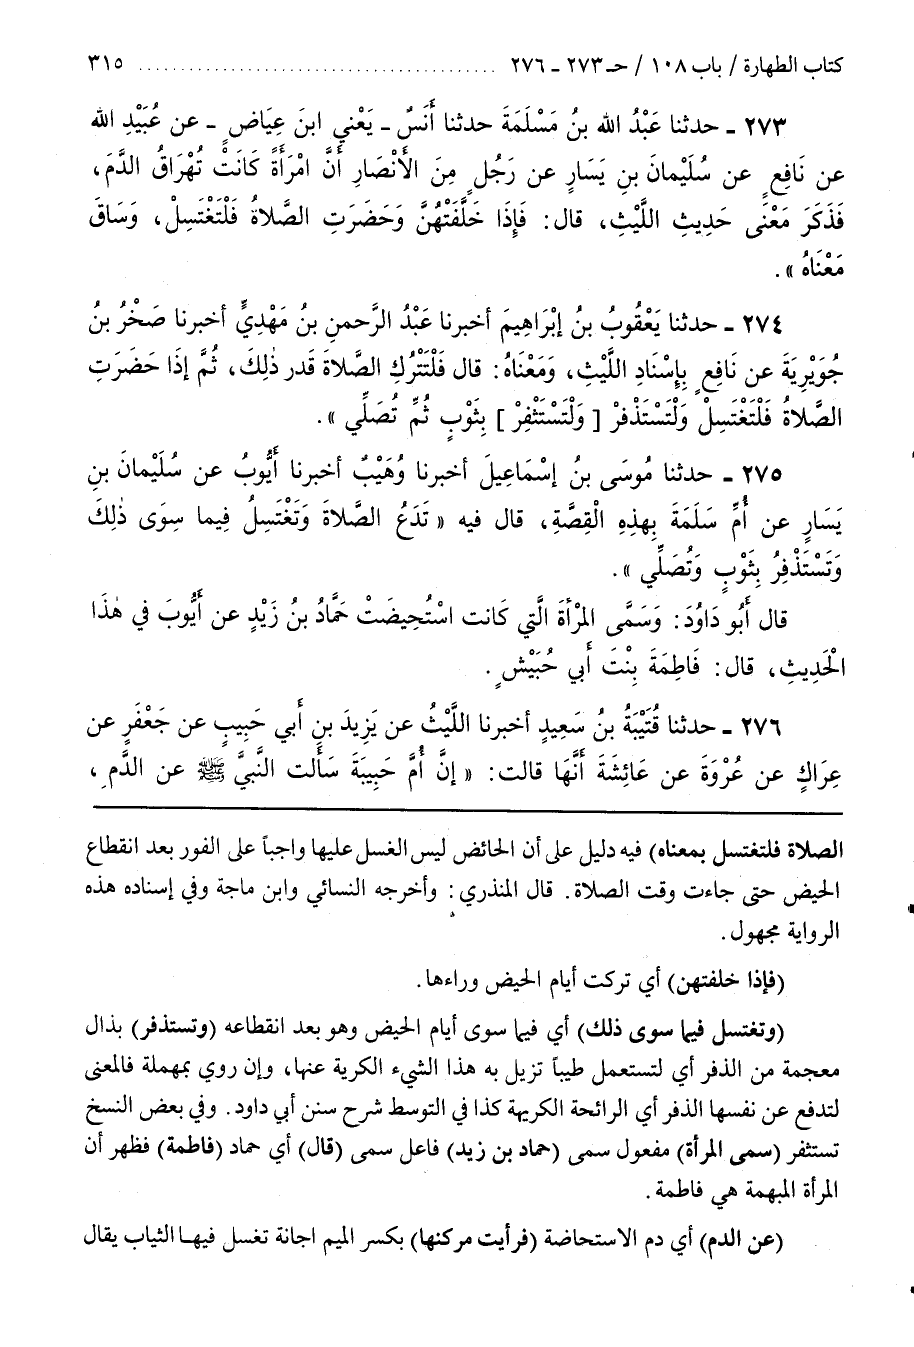 كتاب الطهارة / باب ١٠٨ / حـ ٢٧٣ ـ ٢٧٦ ........................................ ٣١٥
٢٧٣ ـ حدثنا عَبْدُ الله بنُ مَسْلَمَةَ حدثنا أَنَسٌ ـ يَعْني ابنَ عِيَاضٍ ـ عن عُبَيْدِ الله
عن نَافِعٍ عن سُلَيْمانَ بنِ يَسَارٍ عن رَجُلٍ مِنَ الأنْصَارِ أنَّ امْرَأَةً كَانَتْ تُهْرَاقُ الدَّمَ،
فَذَكَرَ مَعْنَى حَدِيثِ اللَّيْثِ، قال: فَإِذَا خَلَّفَتْهُنَّ وَحَضَرَتِ الصَّلاةُ فَلْتَغْتَسِلْ، وَسَاقَ
مَعْنَاهُ».
٢٧٤ ـ حدثنا يَعْقُوبُ بنُ إبْرَاهِيمَ أخبرنا عَبْدُ الرَّحمنِ بنُ مَهْدِيٍّ أخبرنا صَخْرُ بنُ
جُوَيْرِيَةَ عن نَافِعٍ بِإِسْنَادِ اللَّيْثِ، وَمَعْنَاهُ: قال فَلْتَتْرُكِ الصَّلاةَ قَدر ذٰلِكَ، ثُمَّ إذَا حَضَرَتِ
الصَّلاةُ فَلْتَغْتَسِلْ وَلْتَسْتَذْفِرْ [ وَلْتَسْتَثْفِرْ ] بِثَوْبٍ ثُمَّ تُصَلِّي».
٢٧٥ ـ حدثنا مُوسَى بنُ إسْمَاعِيلَ أخبرنا وُهَيْبٌ أخبرنا أيُّوبُ عن سُلَيْمانَ بنِ
يَسَارٍ عن أُمِّ سَلَمَةَ بِهذِهِ الْقِصَّةِ، قال فيه « تَدَعُ الصَّلاةَ وَتَغْتَسِلُ فِيما سِوَى ذٰلِكَ
وَتَسْتَذْفِرُ بِثَوْبٍ وَتُصَلِّي».
قال أَبُو دَاوُدَ: وَسَمَّى المَرْأَةَ الَّتي كَانت اسْتُحِيضَتْ حَمَّادُ بنُ زَيْدٍ عن أيُّوبَ في هٰذا
الْحَدِيثِ، قال: فَاطِمَةَ بِنْتَ أبي حُبَيْشٍ.
٢٧٦ ـ حدثنا قُتَيْبَةُ بنُ سَعِيدٍ أخبرنا اللَّيْثُ عن يَزِيدَ بنِ أبي حَبِيبٍ عن جَعْفَرٍ عن
عِرَاكٍ عن عُرْوَةَ عن عَائِشَةَ أنَّهَا قالت: « إنَّ أُمَّ حَبِيبَةَ سَأَلت النَّبيَّ ﷺ عن الدَّمِ،
الصلاة فلتغتسل بمعناه) فيه دليل على أن الحائض ليس الغسل عليها واجباً على الفور بعد انقطاع
الحيض حتى جاءت وقت الصلاة. قال المنذري: وأخرجه النسائي وابن ماجة وفي إسناده هذه
الرواية مجهول.
(فإذا خلفتهن) أي تركت أيام الحيض وراءها.
(وتغتسل فيما سوى ذلك) أي فيما سوى أيام الحيض وهو بعد انقطاعه (وتستذفر) بذال
معجمة من الذفر أي لتستعمل طيباً تزيل به هذا الشيء الكرية عنها، وإن روي بمهملة فالمعنى
لتدفع عن نفسها الذفر أي الرائحة الكريهة كذا في التوسط شرح سنن أبي داود. وفي بعض النسخ
تستثفر (سمى المرأة) مفعول سمى (حماد بن زيد) فاعل سمى (قال) أي حماد (فاطمة) فظهر أن
المرأة المبهمة هي فاطمة.
(عن الدم) أي دم الاستحاضة (فرأيت مركنها) بكسر الميم اجانة تغسل فيها الثياب يقال